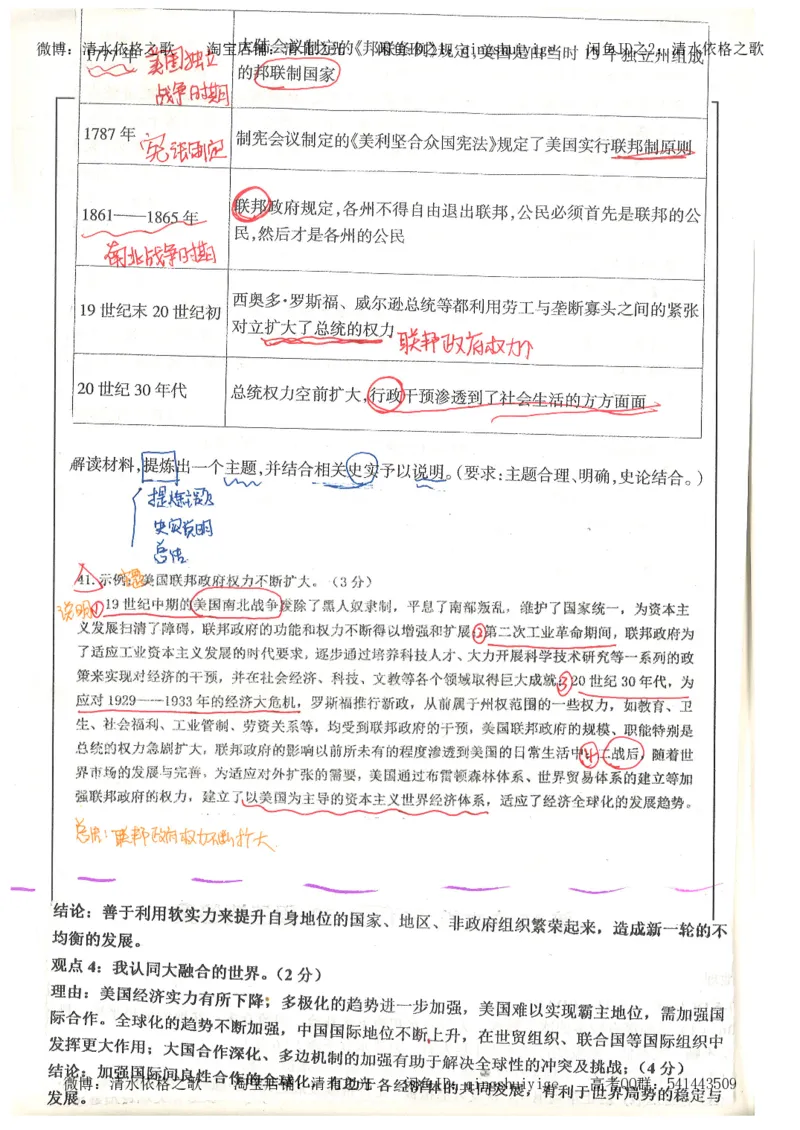 微博：清水依格之歌 淘宝店铺：清水依格之歌 闲鱼ID之1：qingshuiyige 闲鱼ID之2：清水依格之歌
1777年 大陆会议制定的《邦联条例》规定，美国是由当时13个独立州组成
美国独立
的邦联制国家
战争时期
1787年 制宪会议制定的《美利坚合众国宪法》规定了美国实行联邦制原则
宪法制定
联邦政府规定，各州不得自由退出联邦，公民必须首先是联邦的公
1861——1865年
民，然后才是各州的公民
南北战争时期
19世纪末20世纪初 西奥多·罗斯福、威尔逊总统等都利用劳工与垄断寡头之间的紧张
对立扩大了总统的权力
联邦政府权力个
20世纪30年代 总统权力空前扩大，行政干预渗透到了社会生活的方方面面
解读材料，提炼出一个主题，并结合相关史实予以说明。（要求：主题合理、明确，史论结合。）
提炼主题
史实说明
总结
41.示例：美国联邦政府权力不断扩大。（3分）
说明①19世纪中期的美国南北战争废除了黑人奴隶制，平息了南部叛乱，维护了国家统一，为资本主
义发展扫清了障碍，联邦政府的功能和权力不断得以增强和扩展②第二次工业革命期间，联邦政府为
了适应工业资本主义发展的时代要求，逐步通过培养科技人才、大力开展科学技术研究等一系列的政
策来实现对经济的干预，并在社会经济、科技、文教等各个领域取得巨大成就③20世纪30年代，为
应对1929——1933年的经济大危机，罗斯福推行新政，从前属于州权范围的一些权力，如教育、卫
生、社会福利、工业管制、劳资关系等，均受到联邦政府的干预，美国联邦政府的规模、职能特别是
总统的权力急剧扩大，联邦政府的影响以前所未有的程度渗透到美国的日常生活中④二战后，随着世
界市场的发展与完善，为适应对外扩张的需要，美国通过布雷顿森林体系、世界贸易体系的建立等加
强联邦政府的权力，建立了以美国为主导的资本主义世界经济体系，适应了经济全球化的发展趋势。
总结：联邦政府权力不断扩大
结论：善于利用软实力来提升自身地位的国家、地区、非政府组织繁荣起来，造成新一轮的不
均衡的发展。
观点4：我认同大融合的世界。（2分）
理由：美国经济实力有所下降；多极化的趋势进一步加强，美国难以实现霸主地位，需加强国
际合作。全球化的趋势不断加强，中国国际地位不断上升，在世贸组织、联合国等国际组织中
发挥更大作用；大国合作深化、多边机制的加强有助于解决全球性的冲突及挑战；（4分）
结论：加强国际间良性合作的全球化，有助于各经济体的共同发展，有利于世界局势的稳定与
微博：清水依格之歌 淘宝店铺：清水依格之歌 闲鱼ID：qingshuiyige 高考QQ群：541443509
发展。